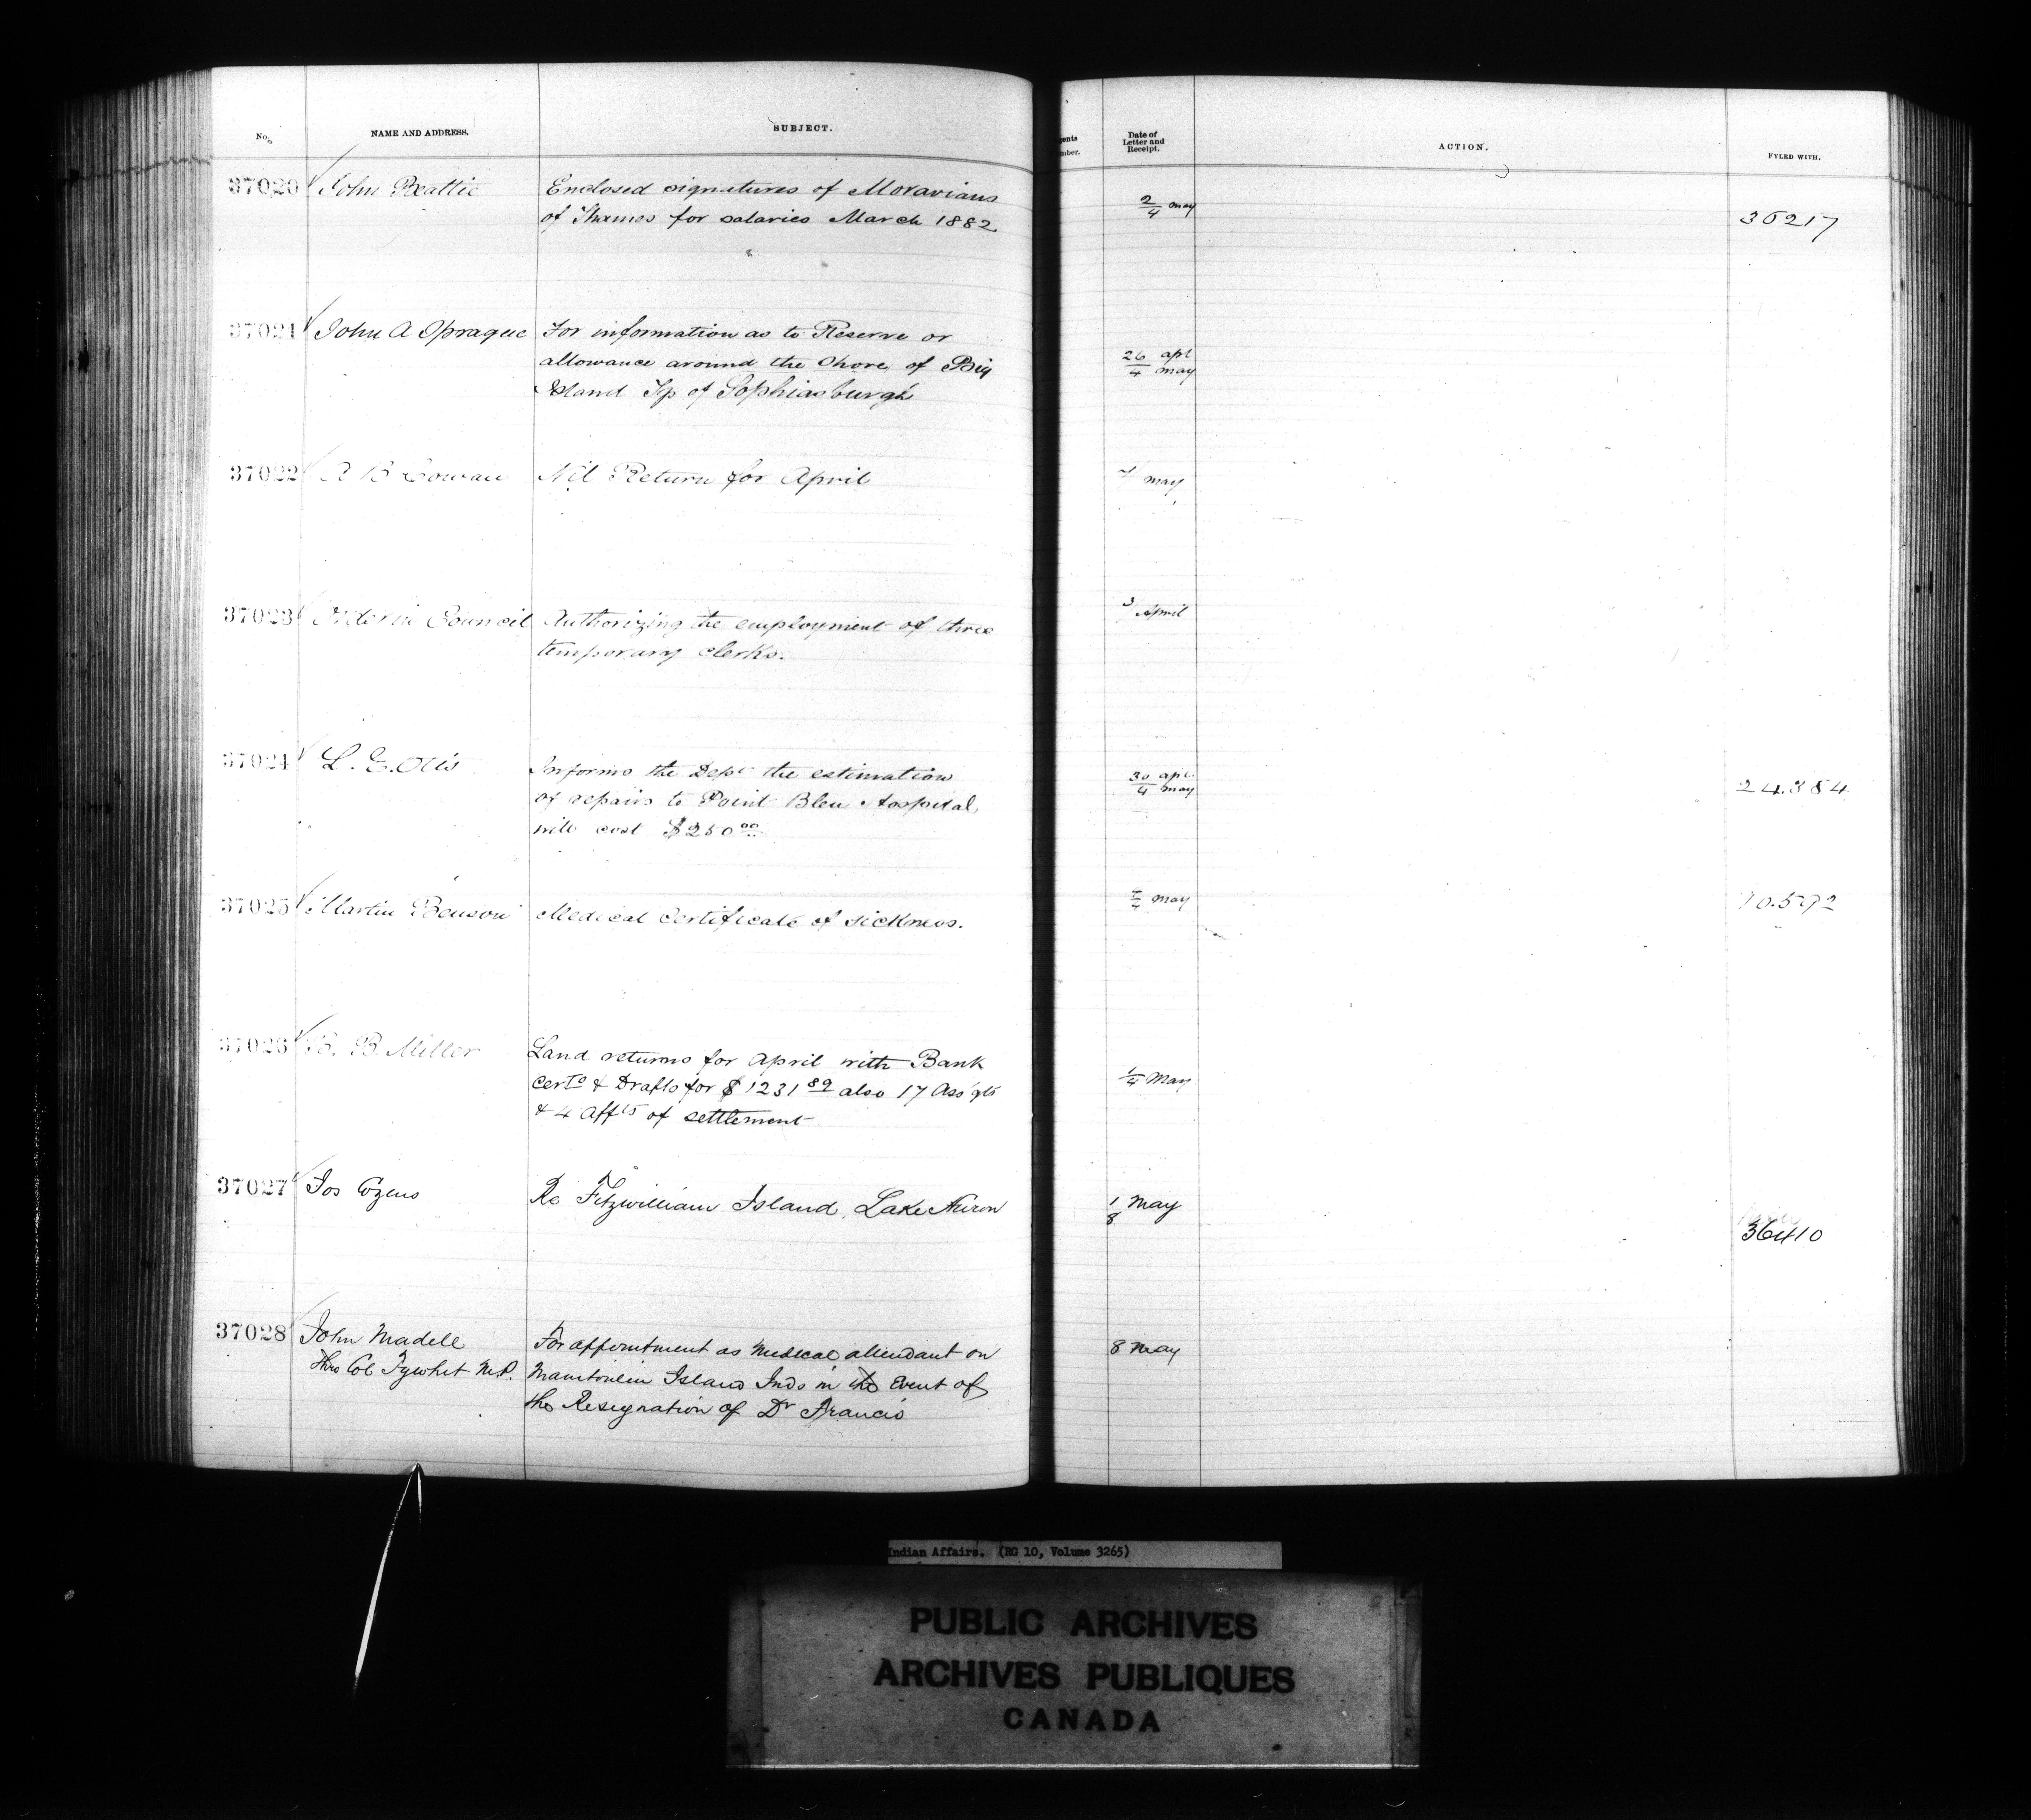 No.
NAME AND ADDRESS.
SUBJECT.
gents
mber.
Date of
Letter and
Receipt.
ACTION.
FYLED WITH.
37020 John Beattie
Enclosed signatures of Moravians
of Thames for salaries March 1882
2/4 may
36217
37021 John A Sprague
For information as to Reserve or
allowance around the Shore of Big
Island Tp of Sophiasburgh
26 apl
4 may
37022 A B Cowan
Nil Return for April
4/ may
37023 Order in Council
Authorizing the employment of three
temporary clerks.
3/ April
37024 L. E. Otis
Informs the Dept the estimation
of repairs to Point Bleu Hospital
will cost $250 00
30 apl
4 may
24.384
37025 Martin Benson
Medical Certificate of sickness.
4 may
10.592
37026 B. B. Miller
Land returns for April with Bank
Certs & Drafts for $1231 89 also 17 Ass'gts
& 4 Affts of settlement
1/4 May
37027 Jos Cozens
Re Fitzwilliam Island, Lake Huron
1 May
8
36410
37028 John Madell
thro Col Tyrwhit M.P.
For appointment as Medical attendant on
Manitoulin Island Inds in the Event of
the Resignation of Dr Francis
8 May
Indian Affairs. (RG 10, Volume 3265)
PUBLIC ARCHIVES
ARCHIVES PUBLIQUES
CANADA